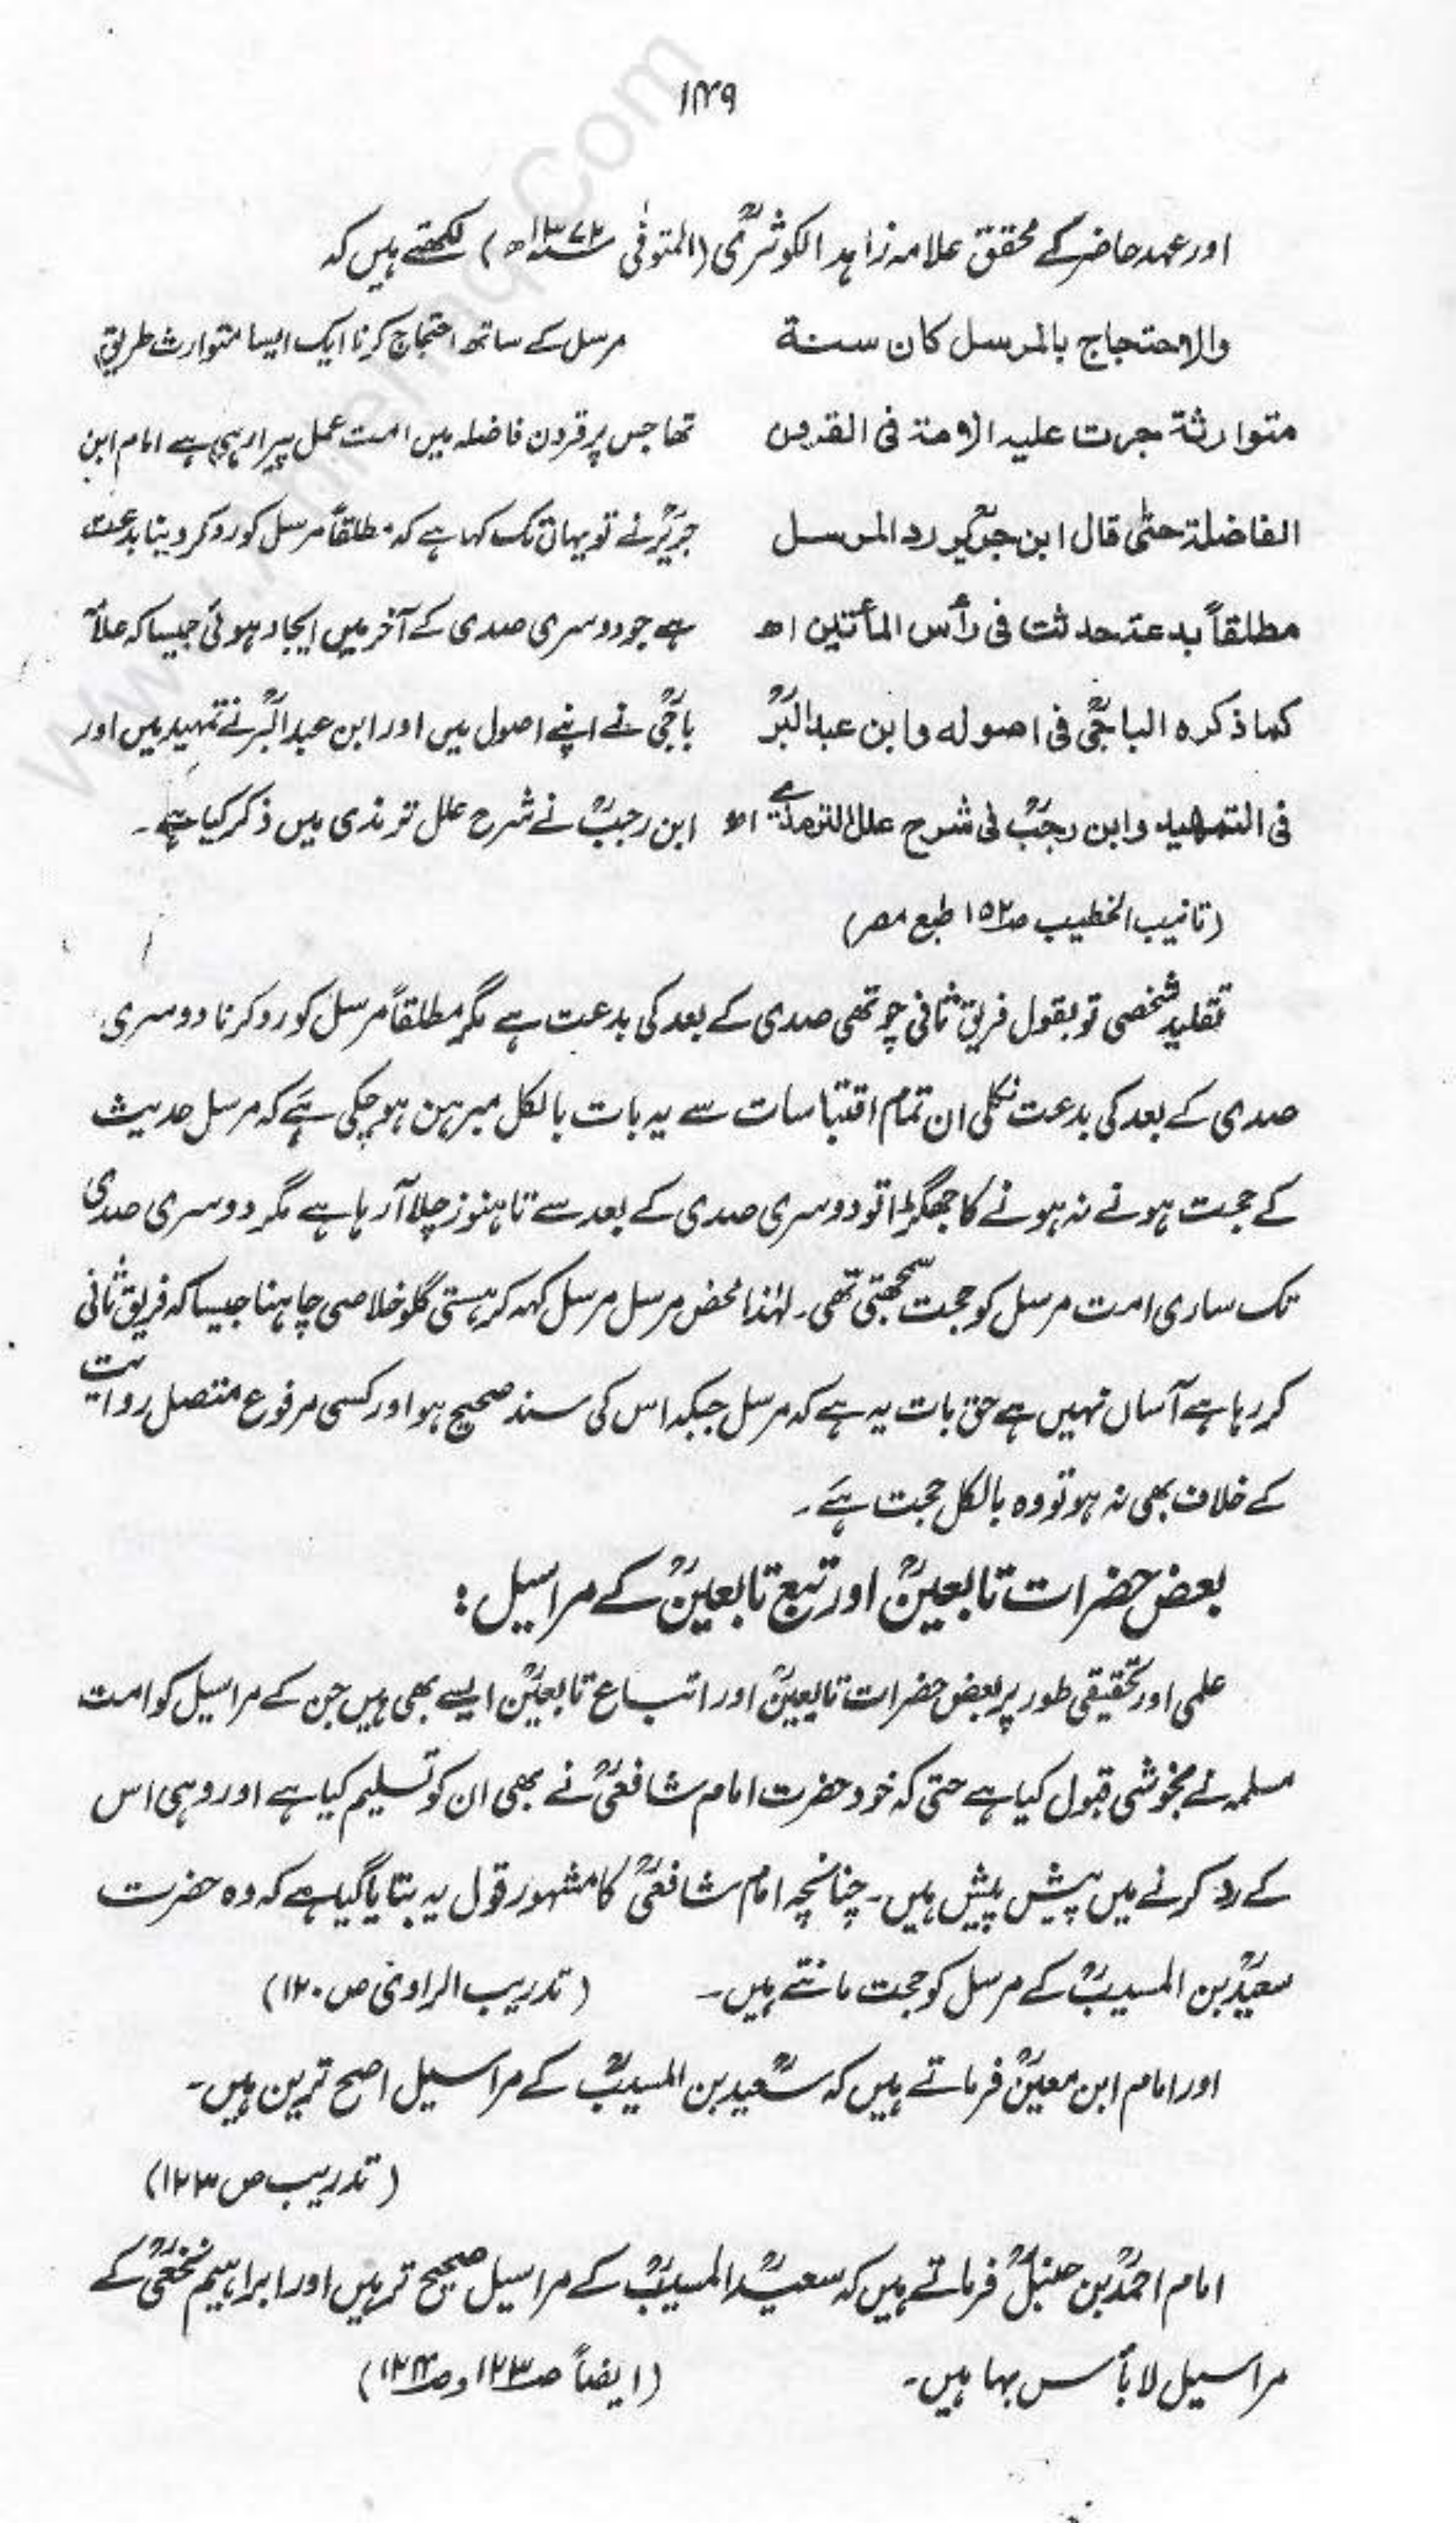 ۱۴۹
اور عہد حاضر کے محقق علامہ زاہد الکوثریؒ (المتوفٰی ۱۳۷۲ھ) لکھتے ہیں کہ
والاحتجاج بالمرسل کان سنة
متوارثة جرت علیہ الامة فی القرون
الفاضلة حتٰی قال ابن جریرؒ رد المرسل
مطلقاً بدعة حدثت فی رأس المأتین اھ
کما ذکرہ الباجیؒ فی اصولہ وابن عبدالبرؒ
فی التمہید وابن رجبؒ فی شرح علل الترمذی اھ
مرسل کے ساتھ احتجاج کرنا ایک ایسا متوارث طریق
تھا جس پر قرون فاضلہ میں امت عمل پیرا رہی ہے امام ابن
جریرؒ نے تو یہاں تک کہا ہے کہ مطلقاً مرسل کو رد کر دینا بدعت
ہے جو دوسری صدی کے آخر میں ایجاد ہوئی جیسا کہ علامہ
باجیؒ نے اپنے اصول میں اور ابن عبدالبرؒ نے تمہید میں اور
ابن رجبؒ نے شرح علل ترمذی میں ذکر کیا ہے۔
(تانیب الخطیب ص۱۵۲ طبع مصر)
تقلید شخصی تو بقول فریق ثانی چوتھی صدی کے بعد کی بدعت ہے مگر مطلقاً مرسل کو رد کرنا دوسری
صدی کے بعد کی بدعت نکلی ان تمام اقتباسات سے یہ بات بالکل مبرہن ہو چکی ہے کہ مرسل حدیث
کے حجت ہونے نہ ہونے کا جھگڑا تو دوسری صدی کے بعد سے تا ہنوز چلا آ رہا ہے مگر دوسری صدی
تک ساری امت مرسل کو حجت سمجھتی تھی۔ لہٰذا محض مرسل مرسل کہہ کر سستی گلو خلاصی چاہنا جیسا کہ فریق ثانی
کر رہا ہے آساں نہیں ہے حق بات یہ ہے کہ مرسل جبکہ اس کی سند صحیح ہو اور کسی مرفوع متصل روایت
کے خلاف بھی نہ ہو تو وہ بالکل حجت ہے۔
بعض حضرات تابعینؒ اور تبع تابعینؒ کے مراسیل:
علمی اور تحقیقی طور پر بعض حضرات تابعینؒ اور اتباع تابعینؒ ایسے بھی ہیں جن کے مراسیل کو امت
مسلمہ نے بخوشی قبول کیا ہے حتی کہ خود حضرت امام شافعیؒ نے بھی ان کو تسلیم کیا ہے اور وہی اس
کے رد کرنے میں پیش پیش ہیں۔ چنانچہ امام شافعیؒ کا مشہور قول یہ بتایا گیا ہے کہ وہ حضرت
سعیدؒ بن المسیبؒ کے مرسل کو حجت مانتے ہیں۔ (تدریب الراوی ص ۱۲۰)
اور امام ابن معینؒ فرماتے ہیں کہ سعیدؒ بن المسیبؒ کے مراسیل اصح ترین ہیں۔
(تدریب ص ۱۲۳)
امام احمدؒ بن حنبلؒ فرماتے ہیں کہ سعیدؒ المسیبؒ کے مراسیل صحیح تر ہیں اور ابراہیم نخعیؒ کے
مراسیل لا بأس بہا ہیں۔ (ایضاً ص۱۲۳ و ص۱۲۴)